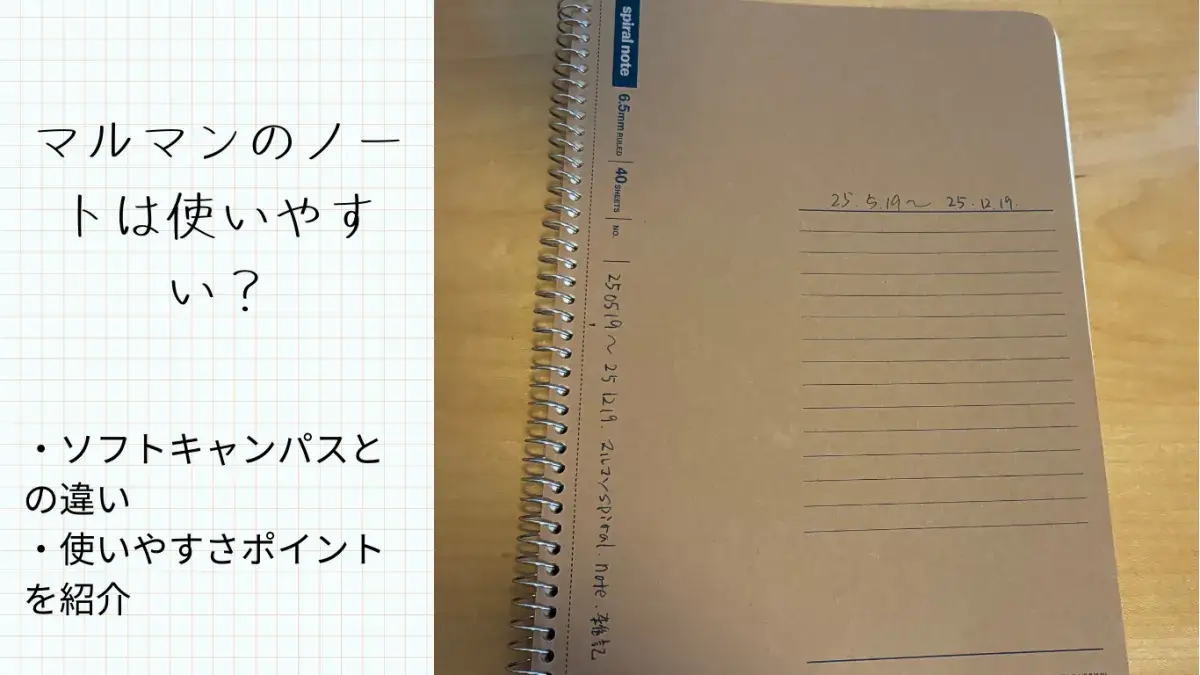 マルマンのノー
トは使いやす
い？
・ソフトキャンパスと
の違い
・使いやすさポイント
を紹介
spiral note
6.5mm RULED
40 SHEETS
NO.
250519〜251219.マルマンspiral.note.雑記
25.5.19〜25.12.19.